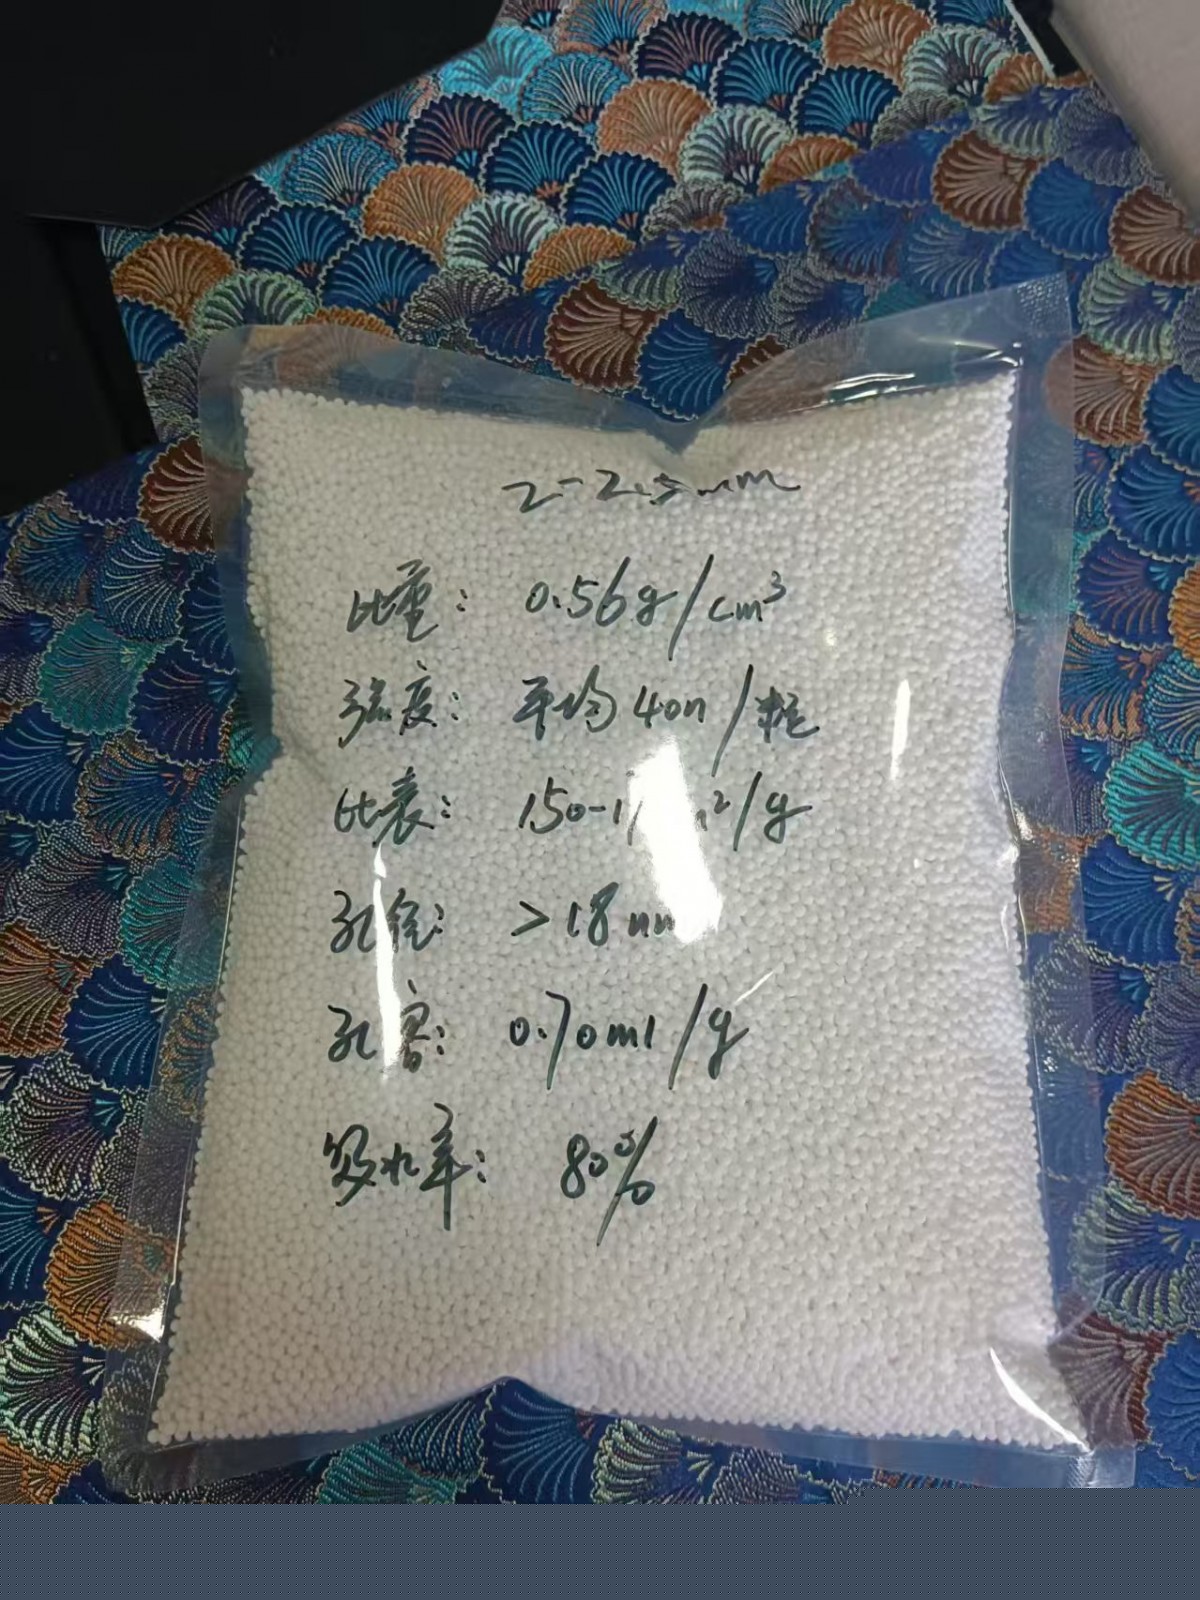 2-2.5mm
比重: 0.56g/cm³
强度: 平均40n/粒
比表: 150-1 ²/g
孔径: >18nm
孔容: 0.70ml/g
吸水率: 80%